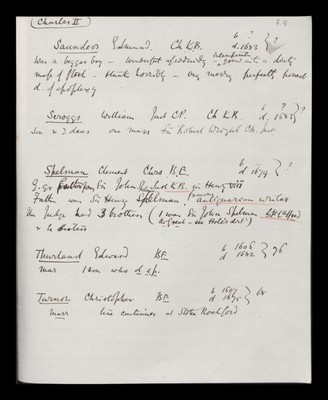 Charles II
58
Saunders Edmund. Ch K.B. b ? d. 1683 } ?
Was a beggar boy – wonderful
mass of flesh – stunk horribly – very merry perfectly honest
d. of apoplexy
Scroggs William Just C.P. Ch K.B. b ? d. 1683 } ?
Son & 2 daurs one marr Sir Robert Wright Ch. Just
Spelman Clement Curs B.E. b d 1679 } ?
G. Gr father from Sir John Just K.B. in Henry VIII
Father was Sir Henry Spelman, famous antiquarian writer
The Judge had 3 brothers (1 was Sir John Spelman
& 4 sisters
Thurland Edward BE b 1606 d 1682 } 76
mar 1 son who d s.p.
Turnor Christopher B.E. b 1607 d 1675 } 68
marr line continues at Stoke Rochford